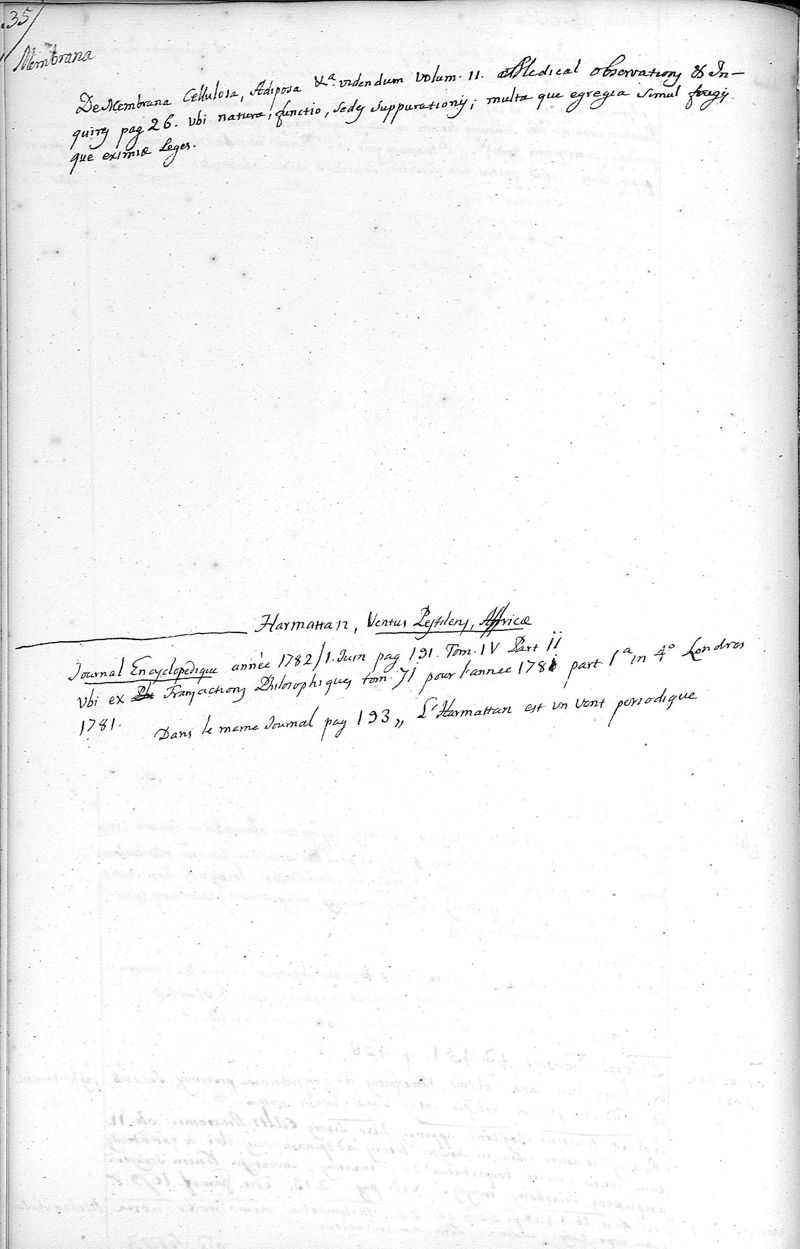 35
Membrana
De Membrana Cellulosa, Adiposa &a. videndum volum. II. Medical observations & In-
quires pag 26. ubi natura, functio, sedes suppurationis; multa que egregia simul
que eximiæ Leges.
Harmattan, Ventus Pestilens, Affricæ
Journal Encyclopedique année 1782/1. Juin pag 191. Tom. IV Part II
Ubi ex Transactions Philosophiques tom. 71 pour l'annee 1781 part 1a in 4o Londres
1781.
Dans le meme Journal pag 193,, L'Harmattan est un vent periodique